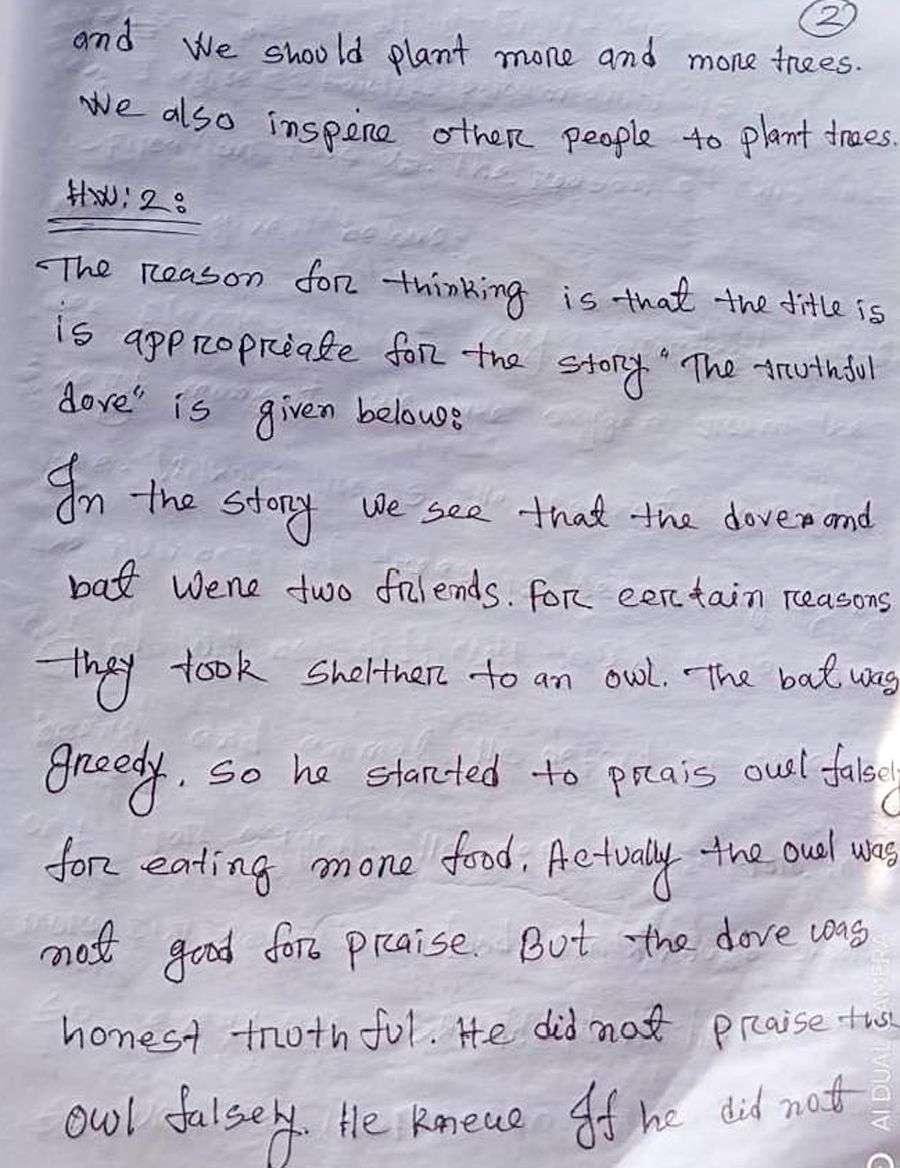 2
and We should plant more and more trees.
We also inspire other people to plant trees.
HW: 2:
The reason for thinking is that the title is
is appropriate for the story "The truthful
dove" is given below:
In the story we see that the dove and
bat were two friends. For certain reasons
they took shelther to an owl. The bat was
greedy. So he started to prais owel falsely
for eating more food. Actually the owel was
not good for praise. But the dove was
honest truthful. He did not praise
owl falsely. He kneue If he did not
AI DUAL CAMERA